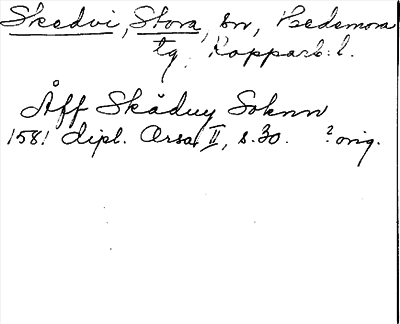 Skedvi, Stora, sn, Hedemora
tg, Kopparb. l.
Åff Skåduy Soknn
1581 dipl. Orsa II, s. 30. ? orig.